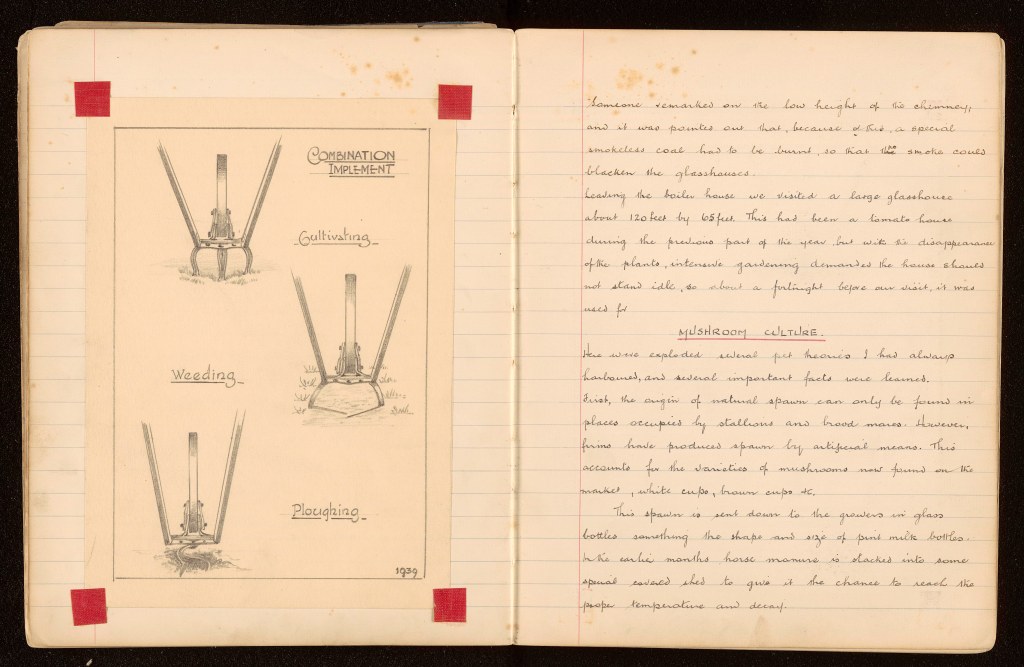 COMBINATION
IMPLEMENT
Cultivating
Weeding
Ploughing
1939
Someone remarked on the low height of the chimney,
and it was pointed out that, because of this, a special
smokeless coal had to be burnt, so that the smoke could
blacken the glasshouses.
Leaving the boiler house we visited a large glasshouse
about 120 feet by 65 feet. This had been a tomato house
during the previous part of the year, but with the disappearance
of the plants, intensive gardening demanded the house should
not stand idle, so about a fortnight before our visit, it was
used for
MUSHROOM CULTURE.
Here were exploded several pet theories I had always
harboured, and several important facts were learned.
First, the origin of natural spawn can only be found in
places occupied by stallions and brood mares. However,
firms have produced spawn by artificial means. This
accounts for the varieties of mushrooms now found on the
market, white cups, brown cups &c.
This spawn is sent down to the growers in glass
bottles something the shape and size of pint milk bottles.
In the earlier months horse manure is stacked into some
special covered shed to give it the chance to reach the
proper temperature and decay.